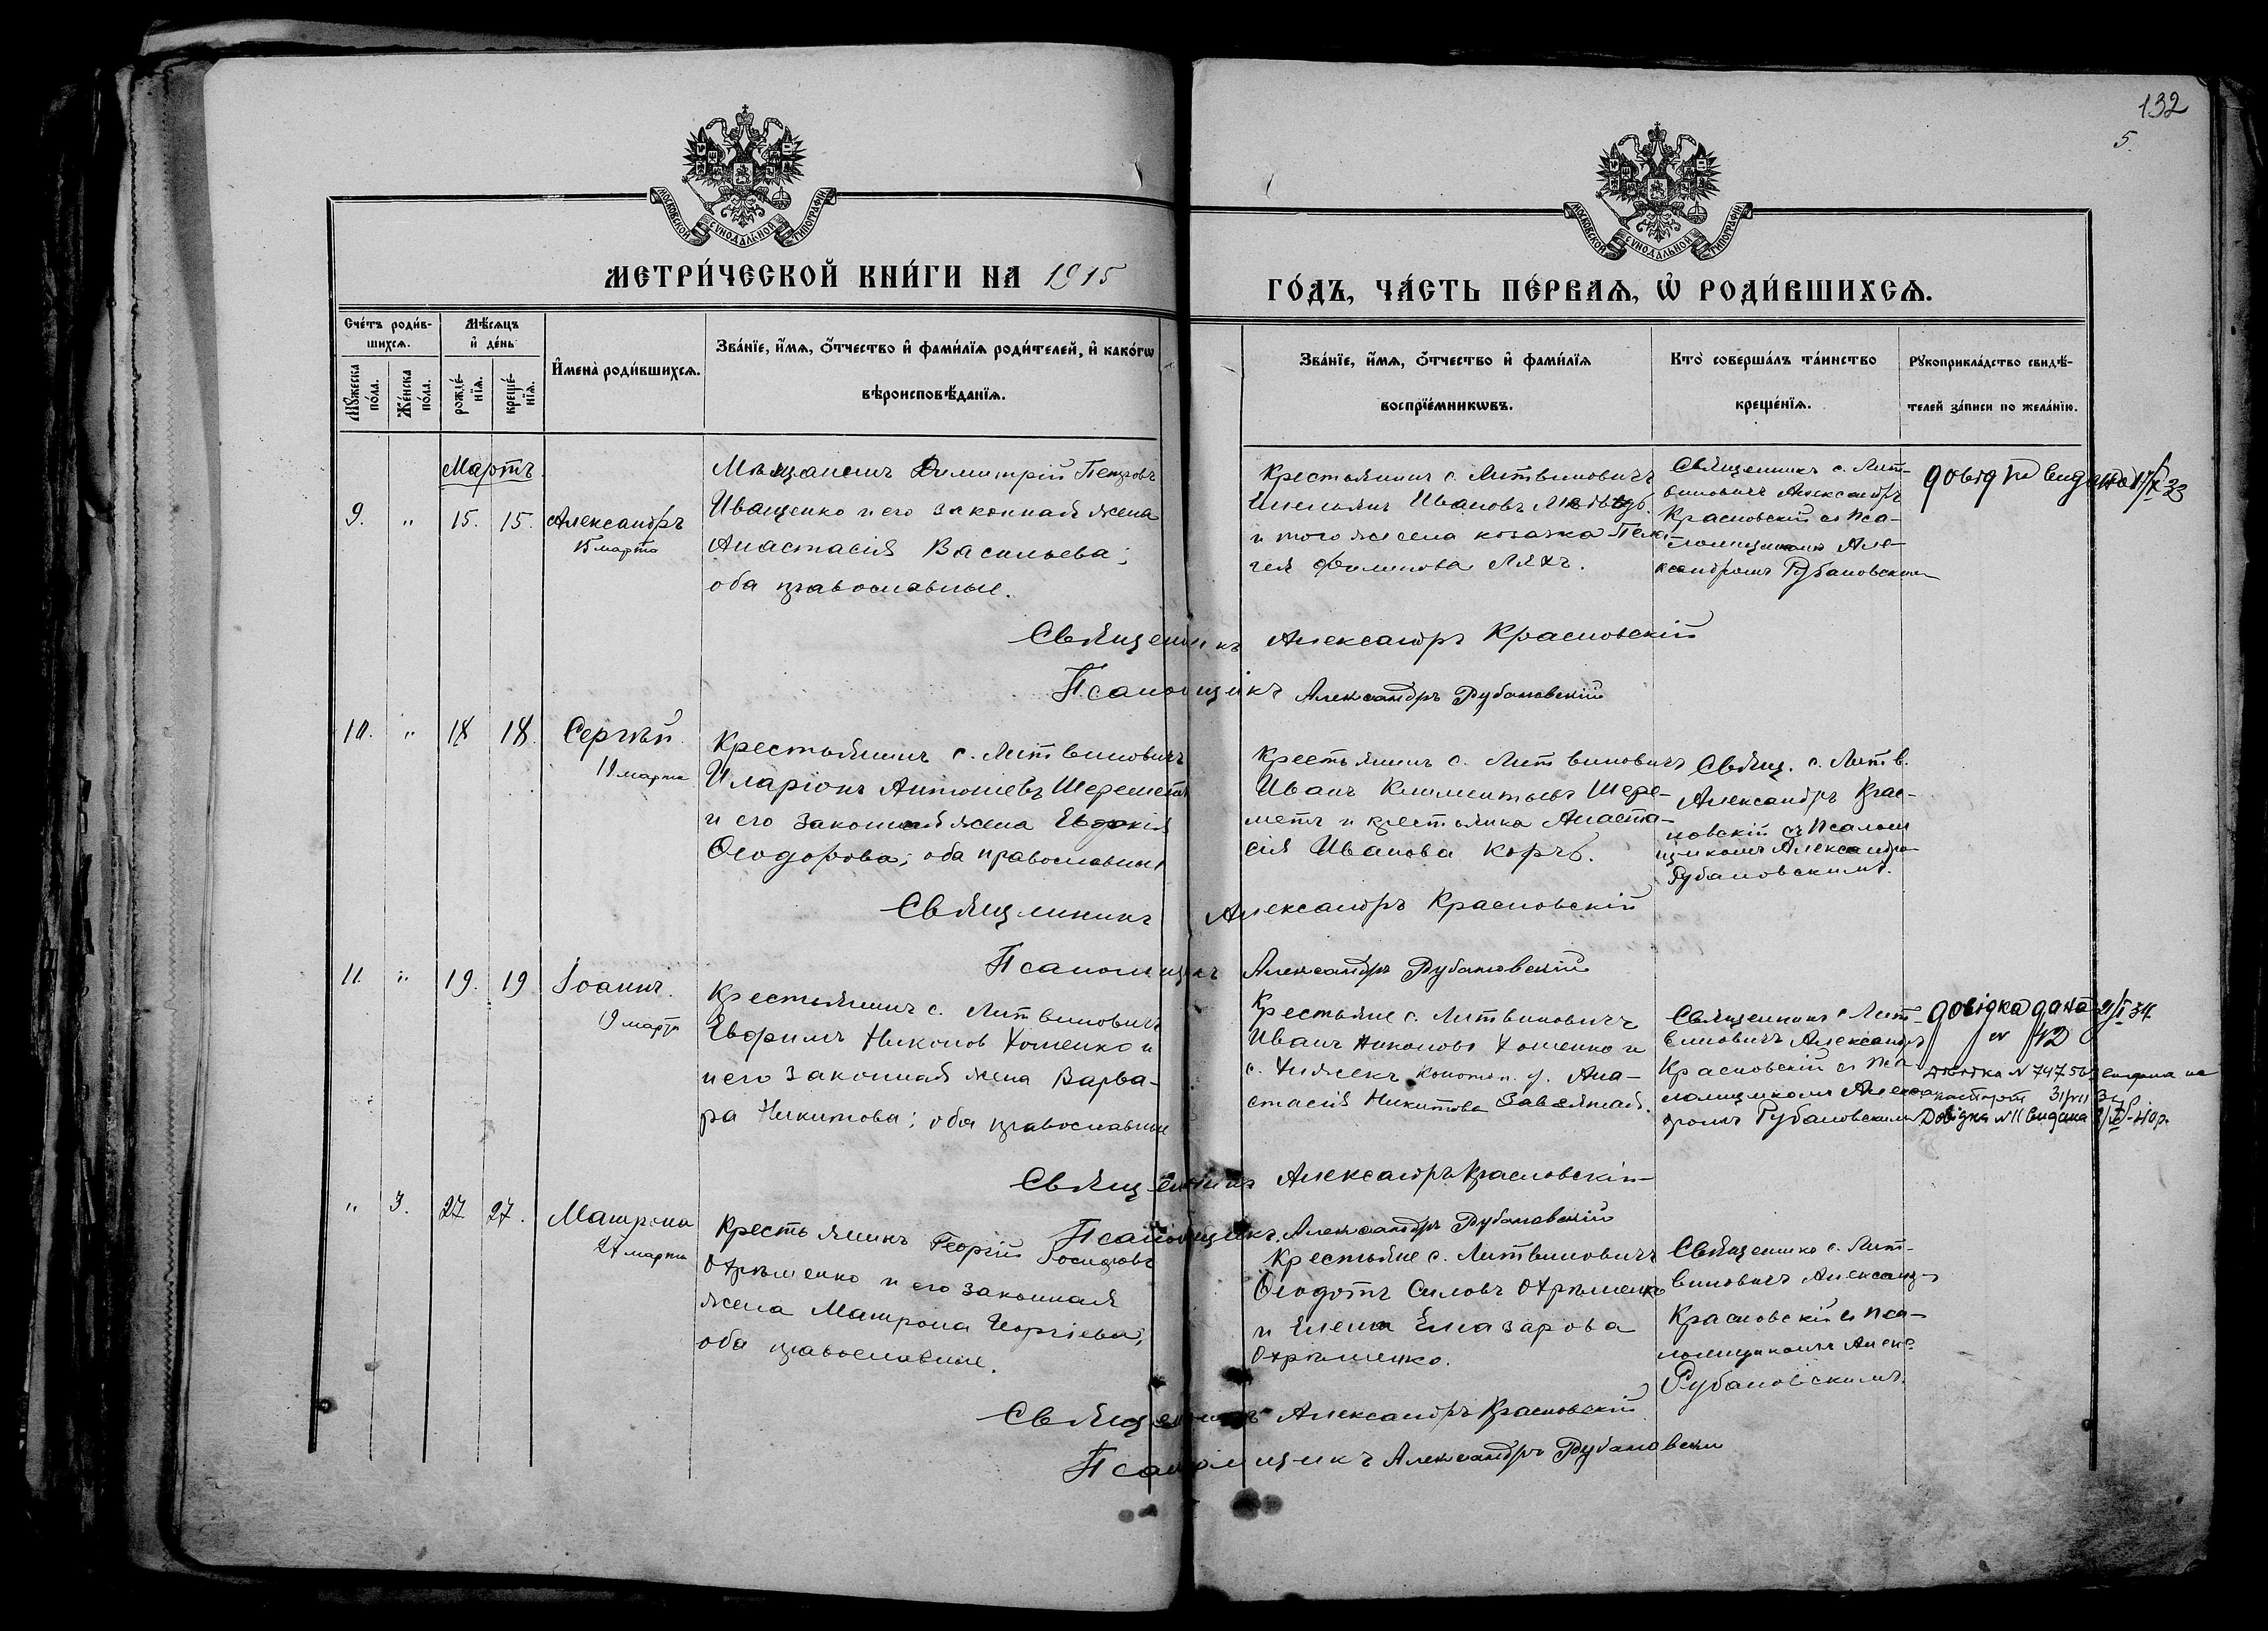 132
5.
МОСКОВСКОЙ СѴНОДАЛЬНОЙ ТИПОГРАФІИ
МОСКОВСКОЙ СѴНОДАЛЬНОЙ ТИПОГРАФІИ
МЕТРИ́ЧЕСКОЙ КНИ́ГИ НА 1915
ГО́ДЪ, ЧА́СТЬ ПЕ́РВАЯ, Ѡ҆ РОДИ́ВШИХСЯ.
Сче́тъ роди́в-
шихся.
Мѣ́сяцъ
и҆ де́нь
Мꙋ́жеска
по́ла.
Же́нска
по́ла.
рожде́-
нїя.
креще́-
нїя.
И҆мена̀ роди́вшихся.
Зва́нїе, и҆́мя, ѻ҆́тчество и҆ фами́лїя роди́телей, и҆ како́гѡ
вѣроисповѣ́данїя.
Зва́нїе, и҆́мя, ѻ҆́тчество и҆ фами́лїя
воспрїе́мникѡвъ.
Кто̀ соверша́лъ та́инство
креще́нїя.
Рꙋкоприкла́дство свидѣ́-
телей за́писи по жела́нїю.
Мартъ
9. " 15. 15. Александръ
15 марта
Мѣщанинъ Димитрій Петровъ
Иващенко и его законная жена
Анастасія Васильева;
оба православные.
Крестьянинъ с. Литвиновичъ
Емельянъ Ивановъ
и того же села козачка Пела-
гея Филипова Ляхъ.
Священникъ с. Лит-
виновичъ Александръ
Красновскій съ Пса-
ломщикомъ Але-
ксандромъ Рубановскимъ
видана
33
Священникъ Александръ Красновскій
Псаломщикъ Александръ Рубановскій
10. " 18 18. Сергѣй
марта
Крестьянинъ с. Литвиновичъ
Иларіонъ Антоніевъ Шереметъ
и его законная жена Евдокія
Ѳеодорова; оба православные
Крестьянинъ с. Литвиновичъ
Иванъ Климентьевъ Шере-
метъ и крестьянка Анаста-
сія Иванова Коржъ.
Свящ. с. Литв.
Александръ Крас-
новскій съ Псалом
щикомъ Александро
Рубановскимъ.
Священникъ Александръ Красновскій
Псаломщикъ Александръ Рубановскій
11. " 19. 19 Іоаннъ.
19 марта
Крестьянинъ с. Литвиновичъ
Евфимъ Никонов Хоменко и
и его законная жена Варва-
ра Никитова; оба православные
Крестьяне с. Литвиновичъ
Иванъ Никоновъ Хоменко и
с. Конотоп. у. Ана-
стасія Никитова
Священникъ с Лит-
виновичъ Александръ
Красновскій съ Пса
ломщикомъ Алекса
дромъ Рубановскимъ
Довідка дана 34
N 12
N 74756
31/VII
Довідка N 11 видана 40 р.
Священникъ Александръ Красновскій
Псаломщикъ. Александръ Рубановскій
" 3. 27. 27. Матрона
марта
Крестьянинъ Георгій Іосифовъ
Охрѣменко и его законная
жена Матрона Георгіева;
оба православные.
Крестьяне с. Литвиновичъ
Ѳеодотъ Силовъ Охрѣменко
и Елена Елазарова
Охрѣменко.
Священникъ с. Лит-
виновичъ Александ
Красновскій съ Пса-
ломщикомъ Алекс
Рубановскимъ.
Священникъ Александръ Красновскій
Псаломщикъ Александръ Рубановски